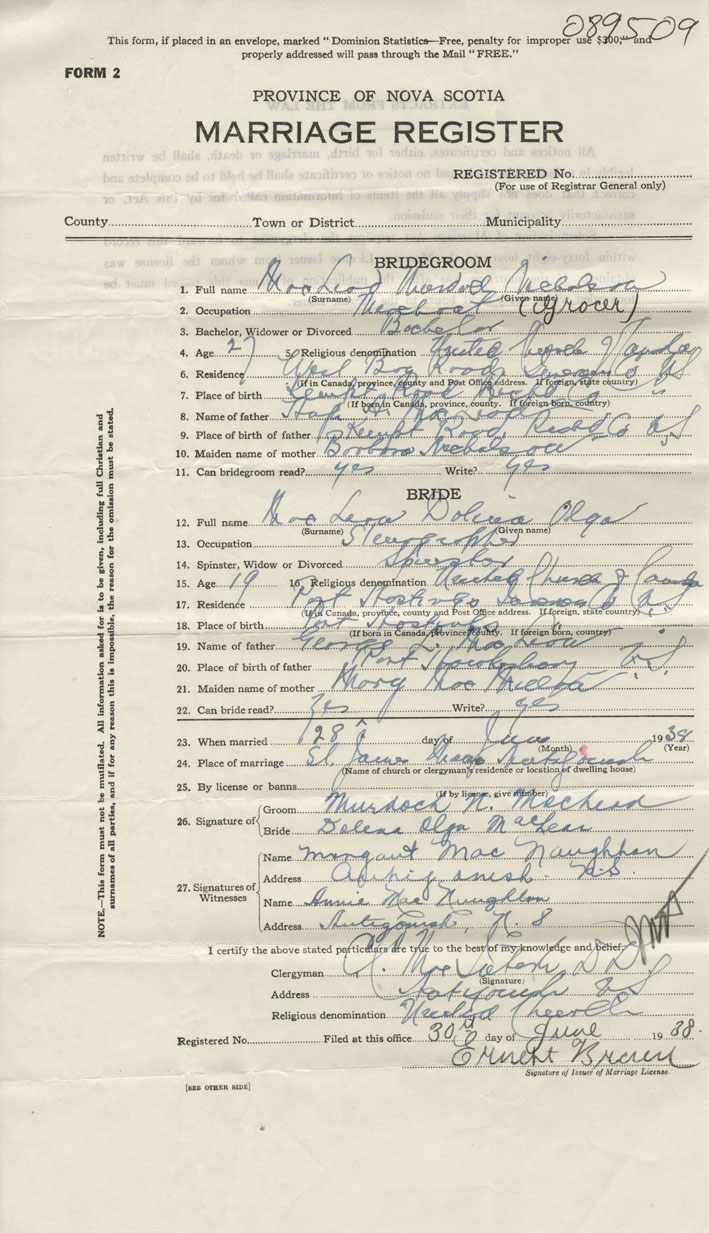 089509
This form, if placed in an envelope, marked "Dominion Statistics—Free, penalty for improper use $300," and
properly addressed will pass through the Mail "FREE."
FORM 2
PROVINCE OF NOVA SCOTIA
MARRIAGE REGISTER
REGISTERED No.
(For use of Registrar General only)
County Town or District Municipality
BRIDEGROOM
1. Full name MacLeod Murdoch Nicholson
(Surname) (Given name)
2. Occupation Merchant (Grocer)
3. Bachelor, Widower or Divorced Bachelor
4. Age 27 5. Religious denomination United Church of Canada
6. Residence West Bay Road Inverness Co N S
(If in Canada, province, county and Post Office address. If foreign, state country)
7. Place of birth Kempt Road Richd Co
(If born in Canada, province, county. If foreign born, country)
8. Name of father H. MacLeod
9. Place of birth of father Kempt Road Richd Co N S
10. Maiden name of mother Barbara Nicholson
11. Can bridegroom read? yes Write? yes
BRIDE
12. Full name MacLean Dolina Olga
(Surname) (Given name)
13. Occupation Stenographer
14. Spinster, Widow or Divorced Spinster
15. Age 19 16. Religious denomination United Church of Canada
17. Residence Port Hastings Inverness Co N S
(If in Canada, province, county and Post Office address. If foreign, state country)
18. Place of birth Port Hastings
(If born in Canada, province, county. If foreign born, country)
19. Name of father George L. MacLean
20. Place of birth of father Port Hawkesbury N.S
21. Maiden name of mother Mary Mac Millan
22. Can bride read? Yes Write? yes
23. When married 28 day of June 1938
(Month) (Year)
24. Place of marriage St. James Manse Antigonish
(Name of church or clergyman's residence or location of dwelling house)
25. By license or banns
(If by license, give number)
26. Signature of
Groom Murdoch N. MacLeod
Bride Dolena Olga MacLean
27. Signatures of
Witnesses
Name Margaret MacNaughton
Address Antigonish N.S.
Name Annie MacNaughton
Address Antigonish, N. S
I certify the above stated particulars are true to the best of my knowledge and belief.
Clergyman D D
(Signature)
Address Antigonish N S
Religious denomination United Church
Registered No. Filed at this office 30th day of June 1938.
Ernest Brown
Signature of Issuer of Marriage License
[SEE OTHER SIDE]
NOTE.—This form must not be mutilated. All information asked for is to be given, including full Christian and
surnames of all parties, and if for any reason this is impossible, the reason for the omission must be stated.